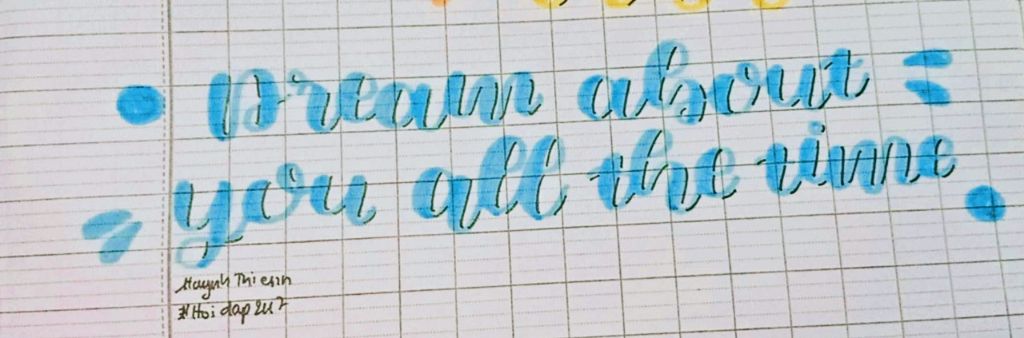 Dream about
you all the time
Huynh Thi
#Hoi dap 247